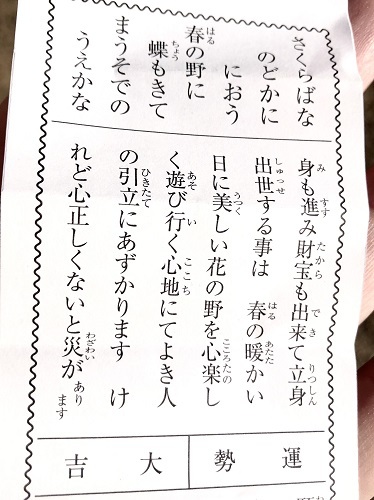 さくらばな
のどかに
におう
春の野に
蝶もきて
まうそでの
うえかな
身も進み財宝も出来て立身
出世する事は 春の暖かい
日に美しい花の野を心楽し
く遊び行く心地にてよき人
の引立にあずかります け
れど心正しくないと災があります
運勢
大吉